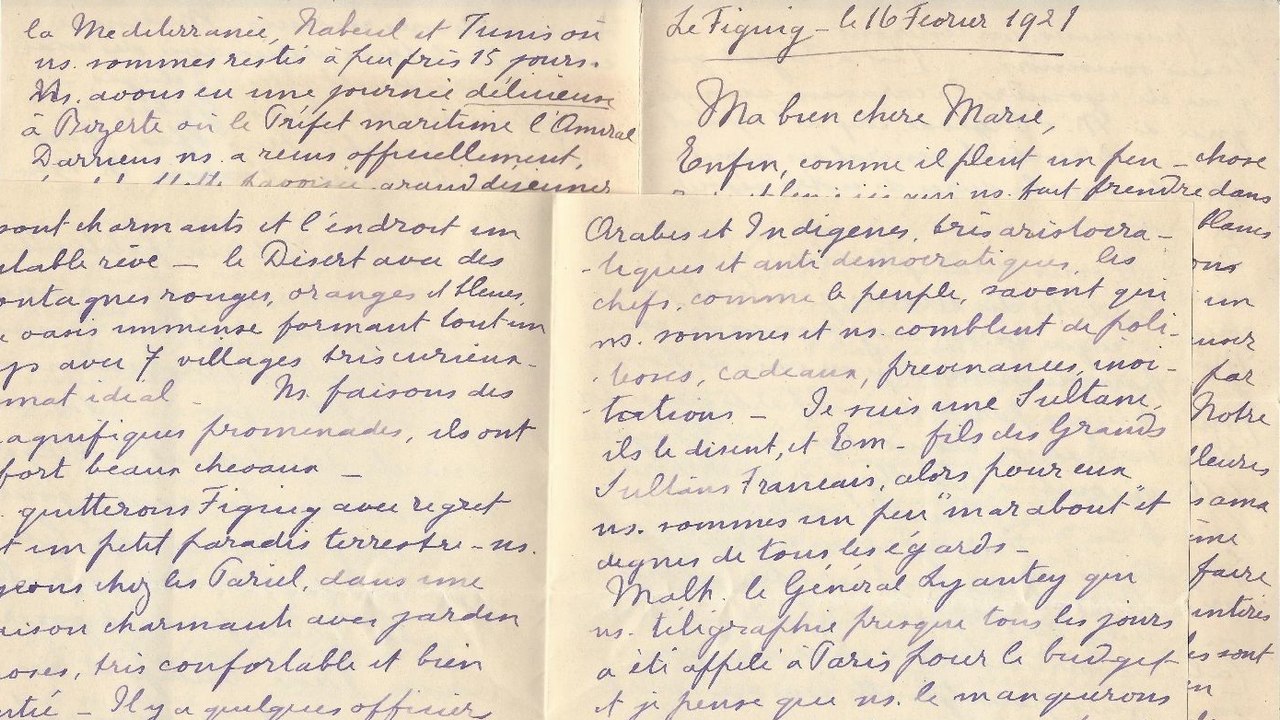 la Mediterranée, Nabeul et Tunis où
ns. sommes restés à peu près 15 jours.
Ns. avons eu une journée délicieuse
à Bizerte où le Préfet maritime l'Amiral
Darrieus ns. a reçus officiellement,
pavoisée, grand déjeuner
Le Figuig - le 16 Fevrier 1921
Ma bien chere Marie,
Enfin, comme il pleut un peu - chose
qui ns. fait prendre dans
sont charmants et l'endroit un
rêve - le Désert avec des
rouges, oranges et bleues,
oasis immense formant tout un
avec 7 villages très curieux -
idéal - Ns. faisons des
promenades, ils ont
fort beaux chevaux -
quitterons Figuig avec regret
un petit paradis terrestre - ns.
chez les Pariel, dans une
charmante avec jardin
très confortable et bien
Il y a quelques officiers
Arabes et Indigènes, très aristocra-
-tiques et anti démocratiques, les
chefs, comme le peuple, savent qui
ns. sommes et ns. comblent de poli-
-tesses, cadeaux, prévenances, invi-
-tations - Je suis une Sultane,
ils le disent, et Em - fils des Grands
Sultans Francais, alors pour eux
ns. sommes un peu "marabout" et
dignes de tous les égards -
Malh. le Général Lyautey qui
ns. télégraphie presque tous les jours
a été appelé à Paris pour le budget
et je pense que ns. le manquerons
blancs
un
par
Notre
faire
sont